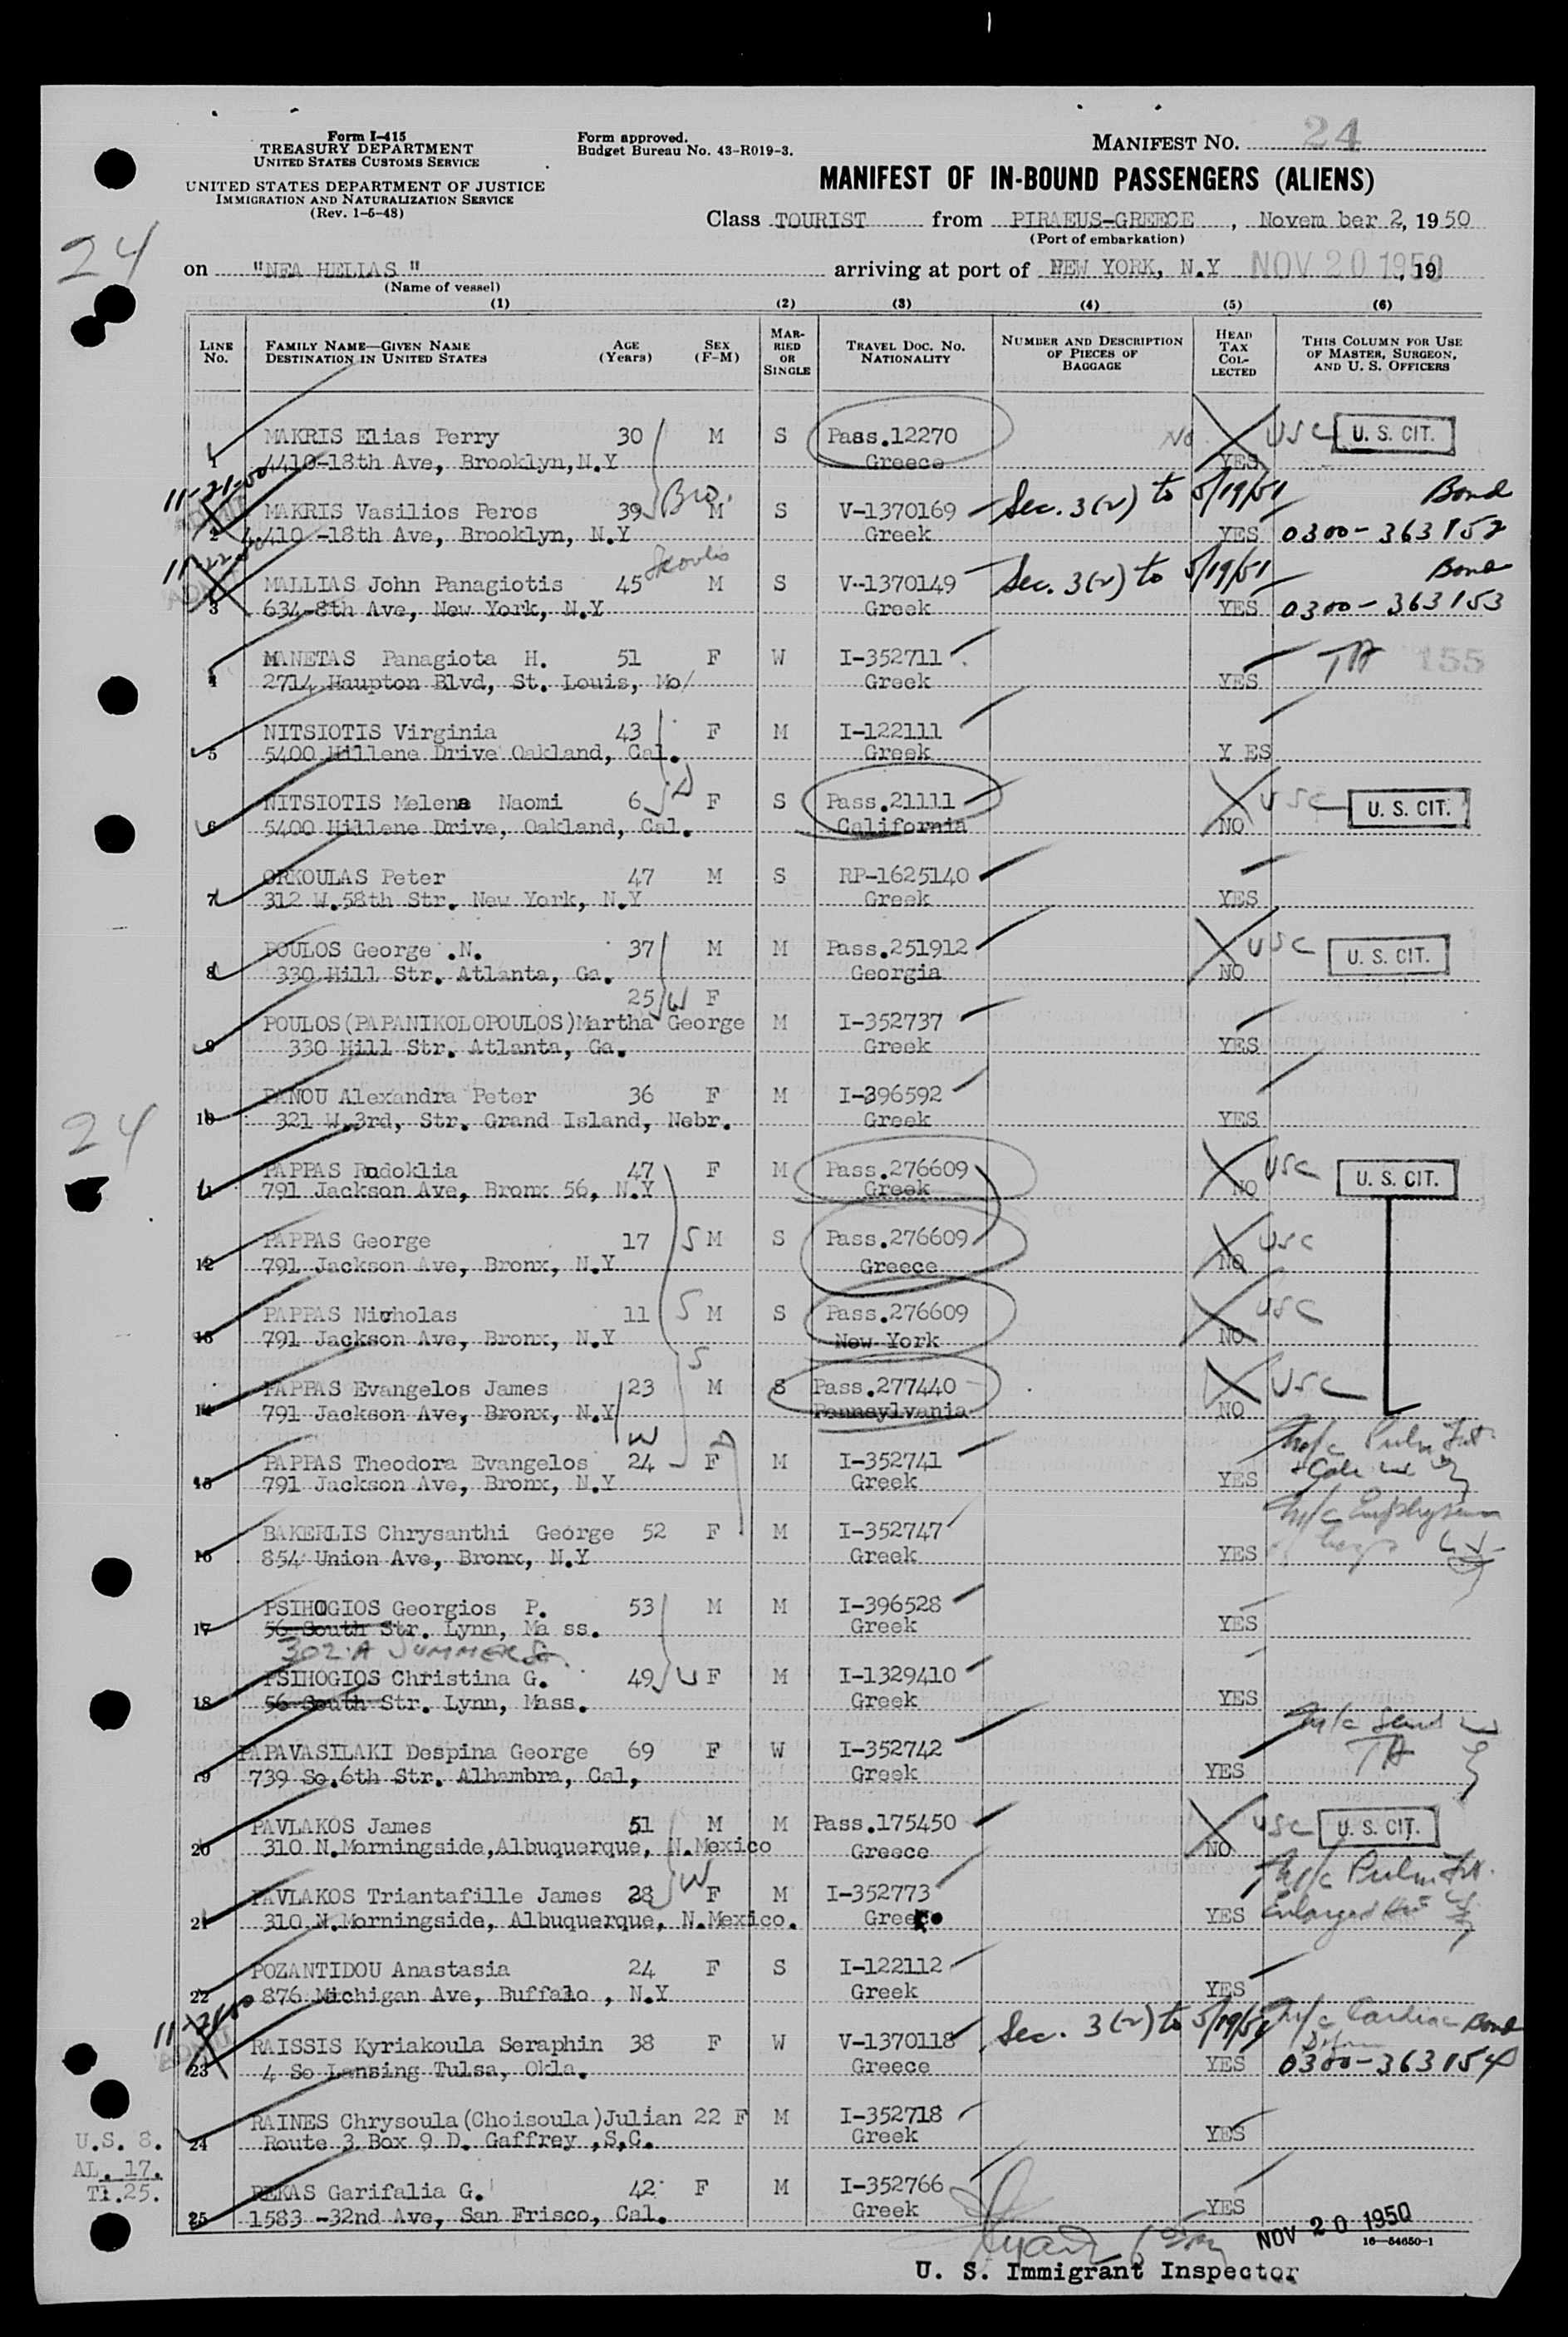 Form I-415
TREASURY DEPARTMENT
UNITED STATES CUSTOMS SERVICE
UNITED STATES DEPARTMENT OF JUSTICE
IMMIGRATION AND NATURALIZATION SERVICE
(Rev. 1-5-48)
Form approved.
Budget Bureau No. 43-R019-3.
MANIFEST NO. 24
MANIFEST OF IN-BOUND PASSENGERS (ALIENS)
Class TOURIST from PIRAEUS-GREECE, Novem ber 2, 19 50
(Port of embarkation)
24
on "NEA HELLAS" arriving at port of NEW YORK, N.Y NOV 20 1950, 19
(Name of vessel)
(1) (2) (3) (4) (5) (6)
LINE No. FAMILY NAME—GIVEN NAME DESTINATION IN UNITED STATES AGE (Years) SEX (F-M) MARRIED OR SINGLE TRAVEL DOC. NO. NATIONALITY NUMBER AND DESCRIPTION OF PIECES OF BAGGAGE HEAD TAX COLLECTED THIS COLUMN FOR USE OF MASTER, SURGEON, AND U. S. OFFICERS
MAKRIS Elias Perry 30 M S Pass.12270 No USC U. S. CIT.
1 4410-18th Ave, Brooklyn,N.Y Greece YES
11-21-50
MAKRIS Vasilios Peros 39 Bro. M S V-1370169 Sec. 3(2) to 5/19/51 Bond
2 4410 -18th Ave, Brooklyn, N.Y Greek YES 0300-363152
11-22-50
MALLIAS John Panagiotis 45 M S V-1370149 Sec. 3(2) to 5/19/51 Bond
3 634-8th Ave, New York, N.Y Greek YES 0300-363153
MANETAS Panagiota H. 51 F W I-352711 155
4 2714 Haupton Blvd, St. Louis, Mo/ Greek YES
NITSIOTIS Virginia 43 F M I-122111
5 5400 Hillene Drive Oakland, Cal. Greek Y ES
NITSIOTIS Melena Naomi 6 D F S Pass.21111 USC U. S. CIT.
6 5400 Hillene Drive, Oakland, Cal. California NO
ORKOULAS Peter 47 M S RP-1625140
7 312 W.58th Str. New York, N.Y Greek YES
POULOS George .N. 37 M M Pass.251912 USC U. S. CIT.
8 330 Hill Str. Atlanta, Ga. Georgia NO
25 W F
POULOS(PAPANIKOLOPOULOS)Martha George M I-352737
9 330 Hill Str. Atlanta, Ga. Greek YES
PANOU Alexandra Peter 36 F M I-396592
10 321 W.3rd, Str. Grand Island, Nebr. Greek YES
24
PAPPAS Rodoklia 47 F M Pass.276609 USC U. S. CIT.
11 791 Jackson Ave, Bronx 56, N.Y Greek NO
PAPPAS George 17 S M S Pass.276609 USC
12 791 Jackson Ave, Bronx, N.Y Greece NO
PAPPAS Nicholas 11 S M S Pass.276609 USC
13 791 Jackson Ave, Bronx, N.Y New York NO
S
PAPPAS Evangelos James 23 M S Pass.277440 USC
14 791 Jackson Ave, Bronx, N.Y Pennsylvania NO
W
PAPPAS Theodora Evangelos 24 F M I-352741
15 791 Jackson Ave, Bronx, N.Y Greek YES
BAKERLIS Chrysanthi George 52 F M I-352747
16 854 Union Ave, Bronx, N.Y Greek YES
PSIHOGIOS Georgios P. 53 M M I-396528
17 56 South Str. Lynn, Ma ss. Greek YES
302-A SUMMER St.
PSIHOGIOS Christina G. 49 W F M I-1329410
18 56 South Str. Lynn, Mass. Greek YES
PAPAVASILAKI Despina George 69 F W I-352742
19 739 So.6th Str. Alhambra, Cal, Greek YES
PAVLAKOS James 51 M M Pass.175450 USC U. S. CIT.
20 310 N.Morningside,Albuquerque, N.Mexico Greece NO
PAVLAKOS Triantafille James 28 W F M I-352773
21 310 N.Morningside, Albuquerque, N.Mexico. Greece YES
POZANTIDOU Anastasia 24 F S I-122112
22 876 Michigan Ave, Buffalo , N.Y Greek YES
RAISSIS Kyriakoula Seraphin 38 F W V-1370118 Sec. 3(2) to 5/19/51 Cardiac Bond
23 4 So Lansing Tulsa, Okla. Greece YES 0300-363154
RAINES Chrysoula(Choisoula)Julian 22 F M I-352718
24 Route 3 Box 9 D. Gaffrey ,S,C. Greek YES
U.S. 8.
AL. 17.
Tl.25.
REKAS Garifalia G. 42 F M I-352766
25 1583 -32nd Ave, San Frisco, Cal. Greek YES
NOV 20 1950
16—54650-1
U. S. Immigrant Inspector